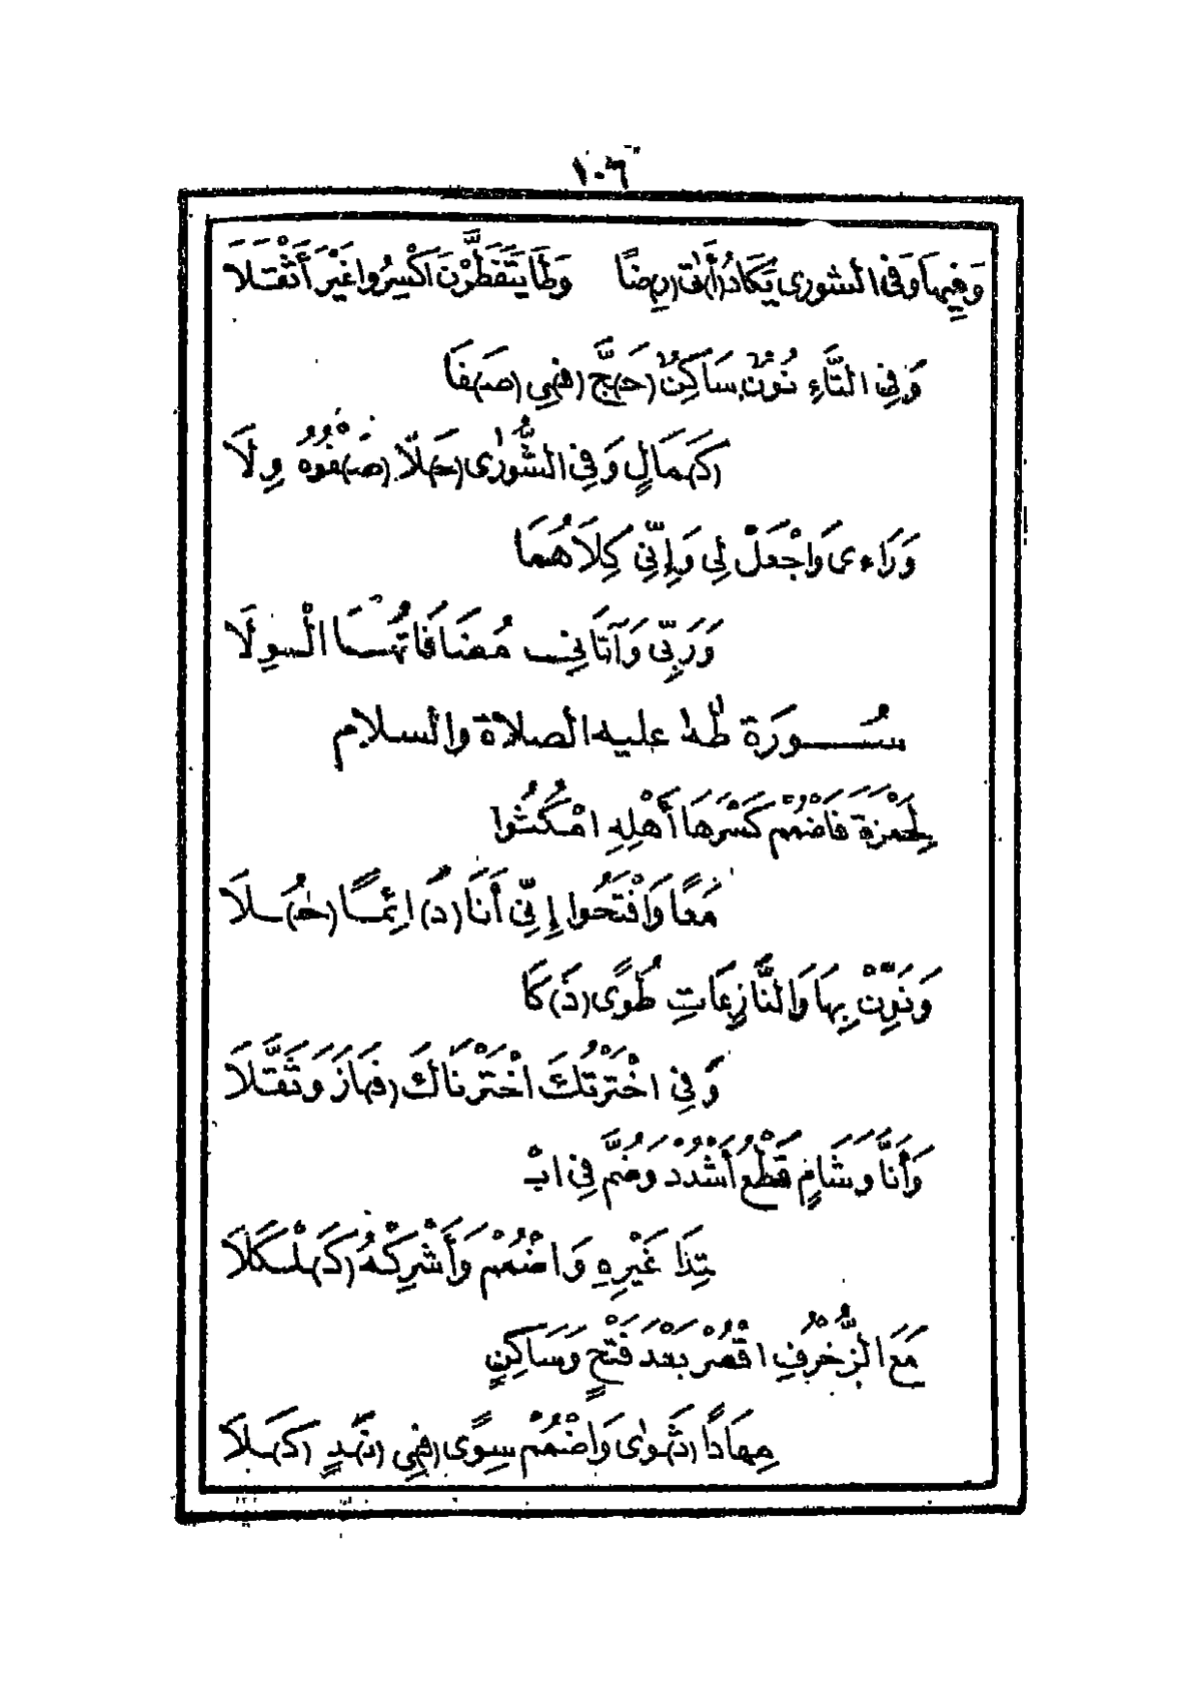 ١٠٦
وَفِيهَا وَفِي الشورى يَكَادُ (أَ)تَى (رِ)ضًا وَطَا يَتَفَطَّرْنَ اكْسِرُوا غَيْرَ أَثْقَلَا
وَفِي التَّاءِ نُونٌ سَاكِنٌ (حَـ)ـجَّ (فِـ)ـي (صَـ)ـفَا
(كَـ)ـمَالٍ وَفِي الشُّورٰى (حَـ)ـلَا (صَـ)ـفْوُهُ وِلَا
وَرَاءى وَاجْعَلْ لِي وَإِنِّي كِلَاهُمَا
وَرَبِّي وَآتَانِي مُضَافَاتُهَا الْوِلَا
سُورَة طٰهٰ عليه الصلاة والسلام
لِحَمْزَةَ فَاضْمُمْ كَسْرَهَا أَهْلِهِ امْكُثُوا
مَعًا وَافْتَحُوا إِنِّي أَنَا (دَ)ائِمًا (حُـ)ـلَا
وَنَوِّنْ بِهَا وَالنَّازِعَاتِ طُوًى (ذَ)كَا
وَفِي اخْتَرْتُكَ اخْتَرْنَاكَ (فَـ)ـازَ وَثَقَّلَا
وَأَنَّا وَشَامٍ قَطْعُ أَشْدُدْ وَضُمَّ فِي ابْـ
ـتِدَا غَيْرِهِ وَاضْمُمْ وَأَشْرِكْهُ (كَـ)ـلْكَلَا
مَعَ الزُّخْرُفِ اقْصُرْ بَعْدَ فَتْحٍ وَسَاكِنٍ
مِهَادًا (ثَـ)ـوٰى وَاضْمُمْ سِوًى (فِـ)ـي (نَـ)ـدٍ (كَـ)ـلَا